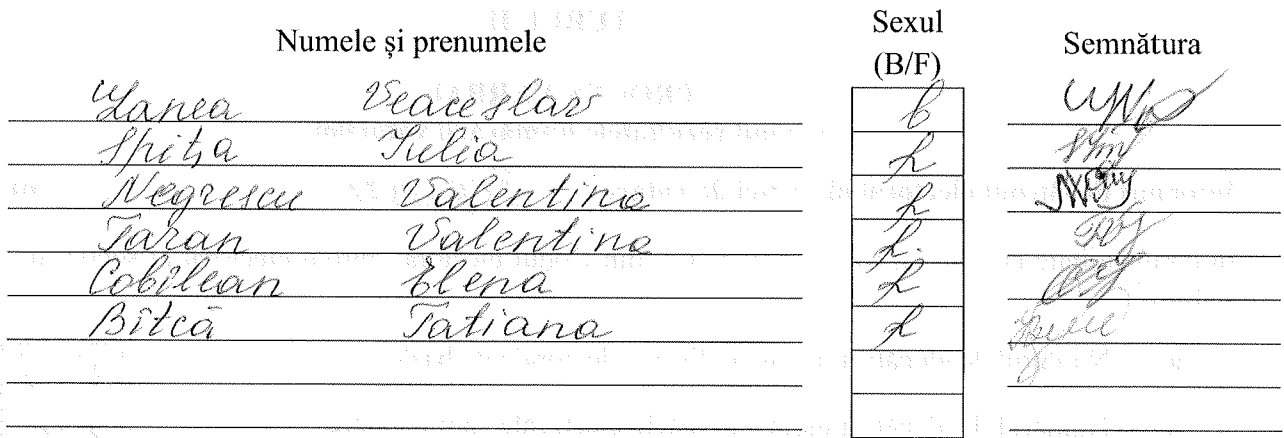 Numele și prenumele Sexul (B/F) Semnătura
Veaceslav b
Spița Iulia f
Negrescu Valentina f
Țaran Valentina f.
Cobîlean Elena f
Bîtcă Tatiana f